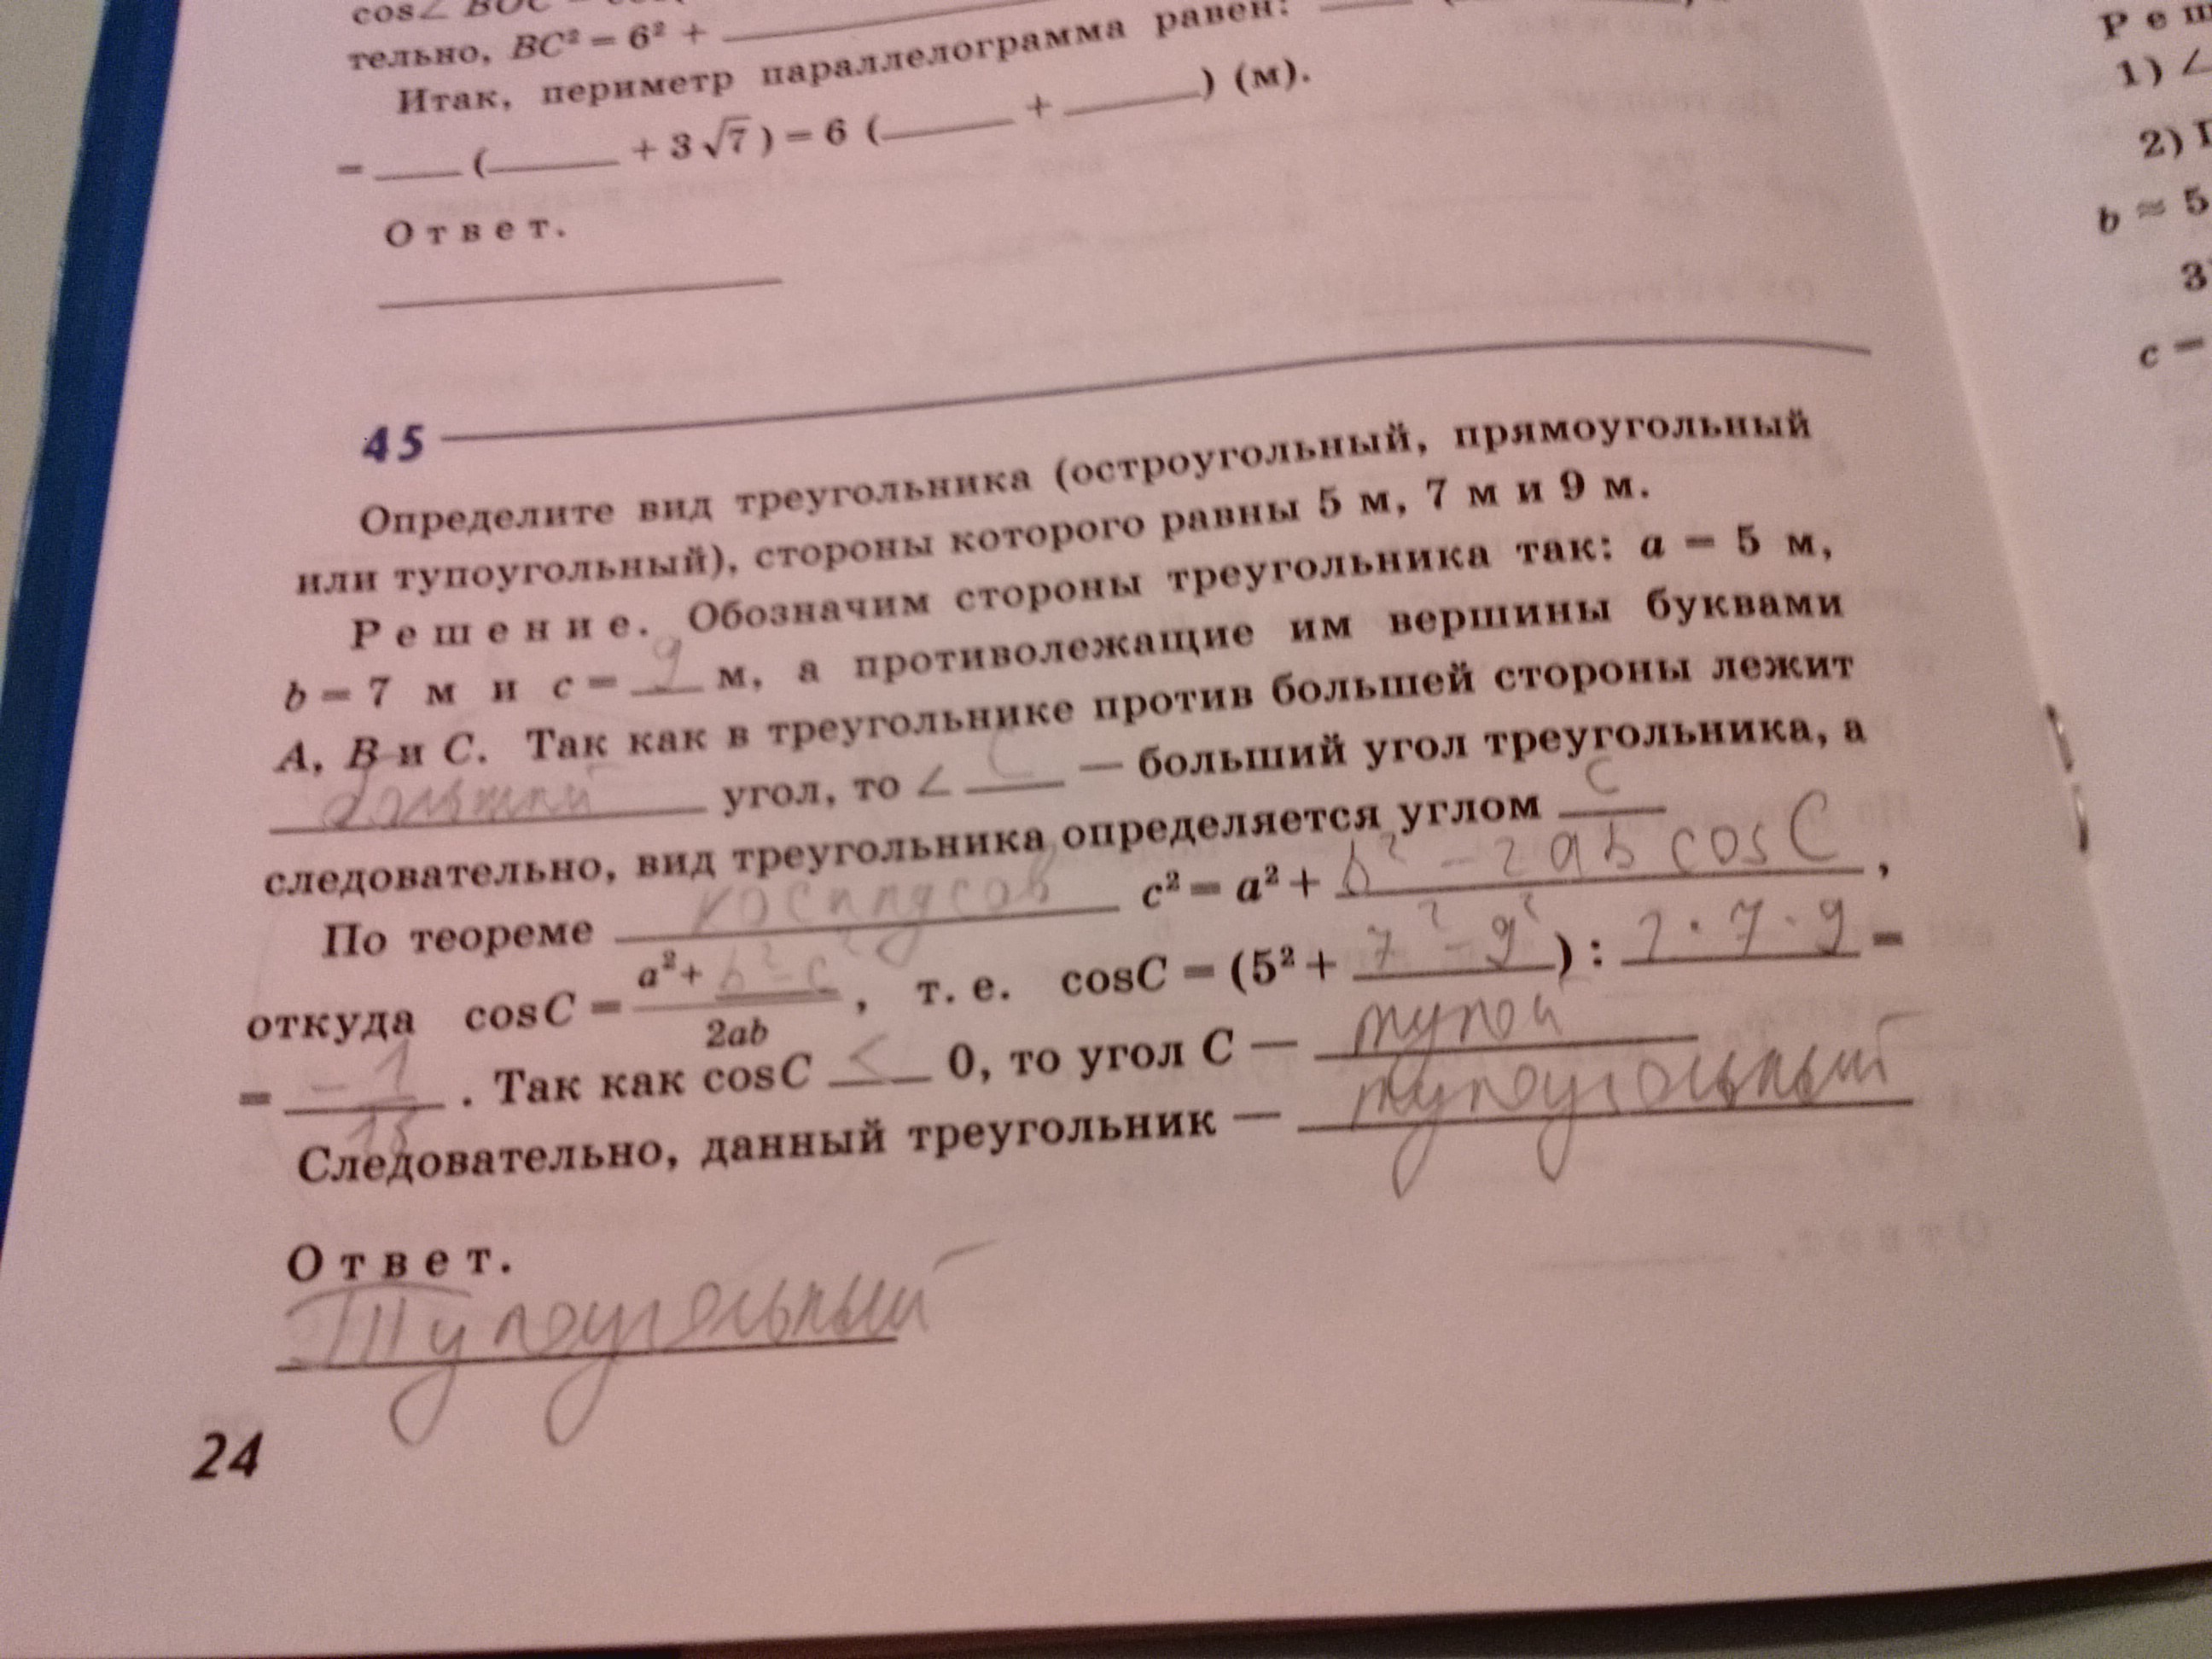 cos∠ BOC
тельно, BC² = 6² + ____
Итак, периметр параллелограмма равен: ____
= ____ (____ + 3√7) = 6 (____ + ____) (м).
Ответ.
45
Определите вид треугольника (остроугольный, прямоугольный
или тупоугольный), стороны которого равны 5 м, 7 м и 9 м.
Решение. Обозначим стороны треугольника так: a = 5 м,
b = 7 м и c = 9 м, а противолежащие им вершины буквами
A, B и C. Так как в треугольнике против большей стороны лежит
больший угол, то ∠ C — больший угол треугольника, а
следовательно, вид треугольника определяется углом C
По теореме косинусов c² = a² + b² - 2ab cosC,
откуда cosC = (a² + b² - c²)/2ab, т. е. cosC = (5² + 7² - 9²) : 2·7·9 =
= -1/18. Так как cosC < 0, то угол C — тупой
Следовательно, данный треугольник — тупоугольный
Ответ.
Тупоугольный
24
Реш
1) ∠
2) П
b ≈ 5
3
c =